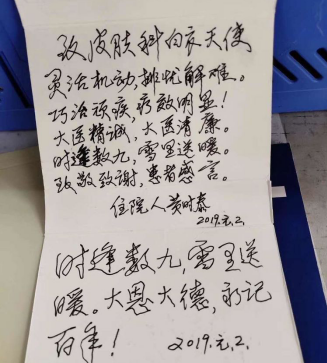 致皮肤科白衣天使
灵活机动,排忧解难。
巧治顽疾,疗效明显!
大医精诚,大医清廉。
时逢数九,雪里送暖。
致敬致谢,患者感言。
住院人黄时泰
2019.元.2.
时逢数九,雪里送
暖。大恩大德,永记
百年!
2019.元.2.